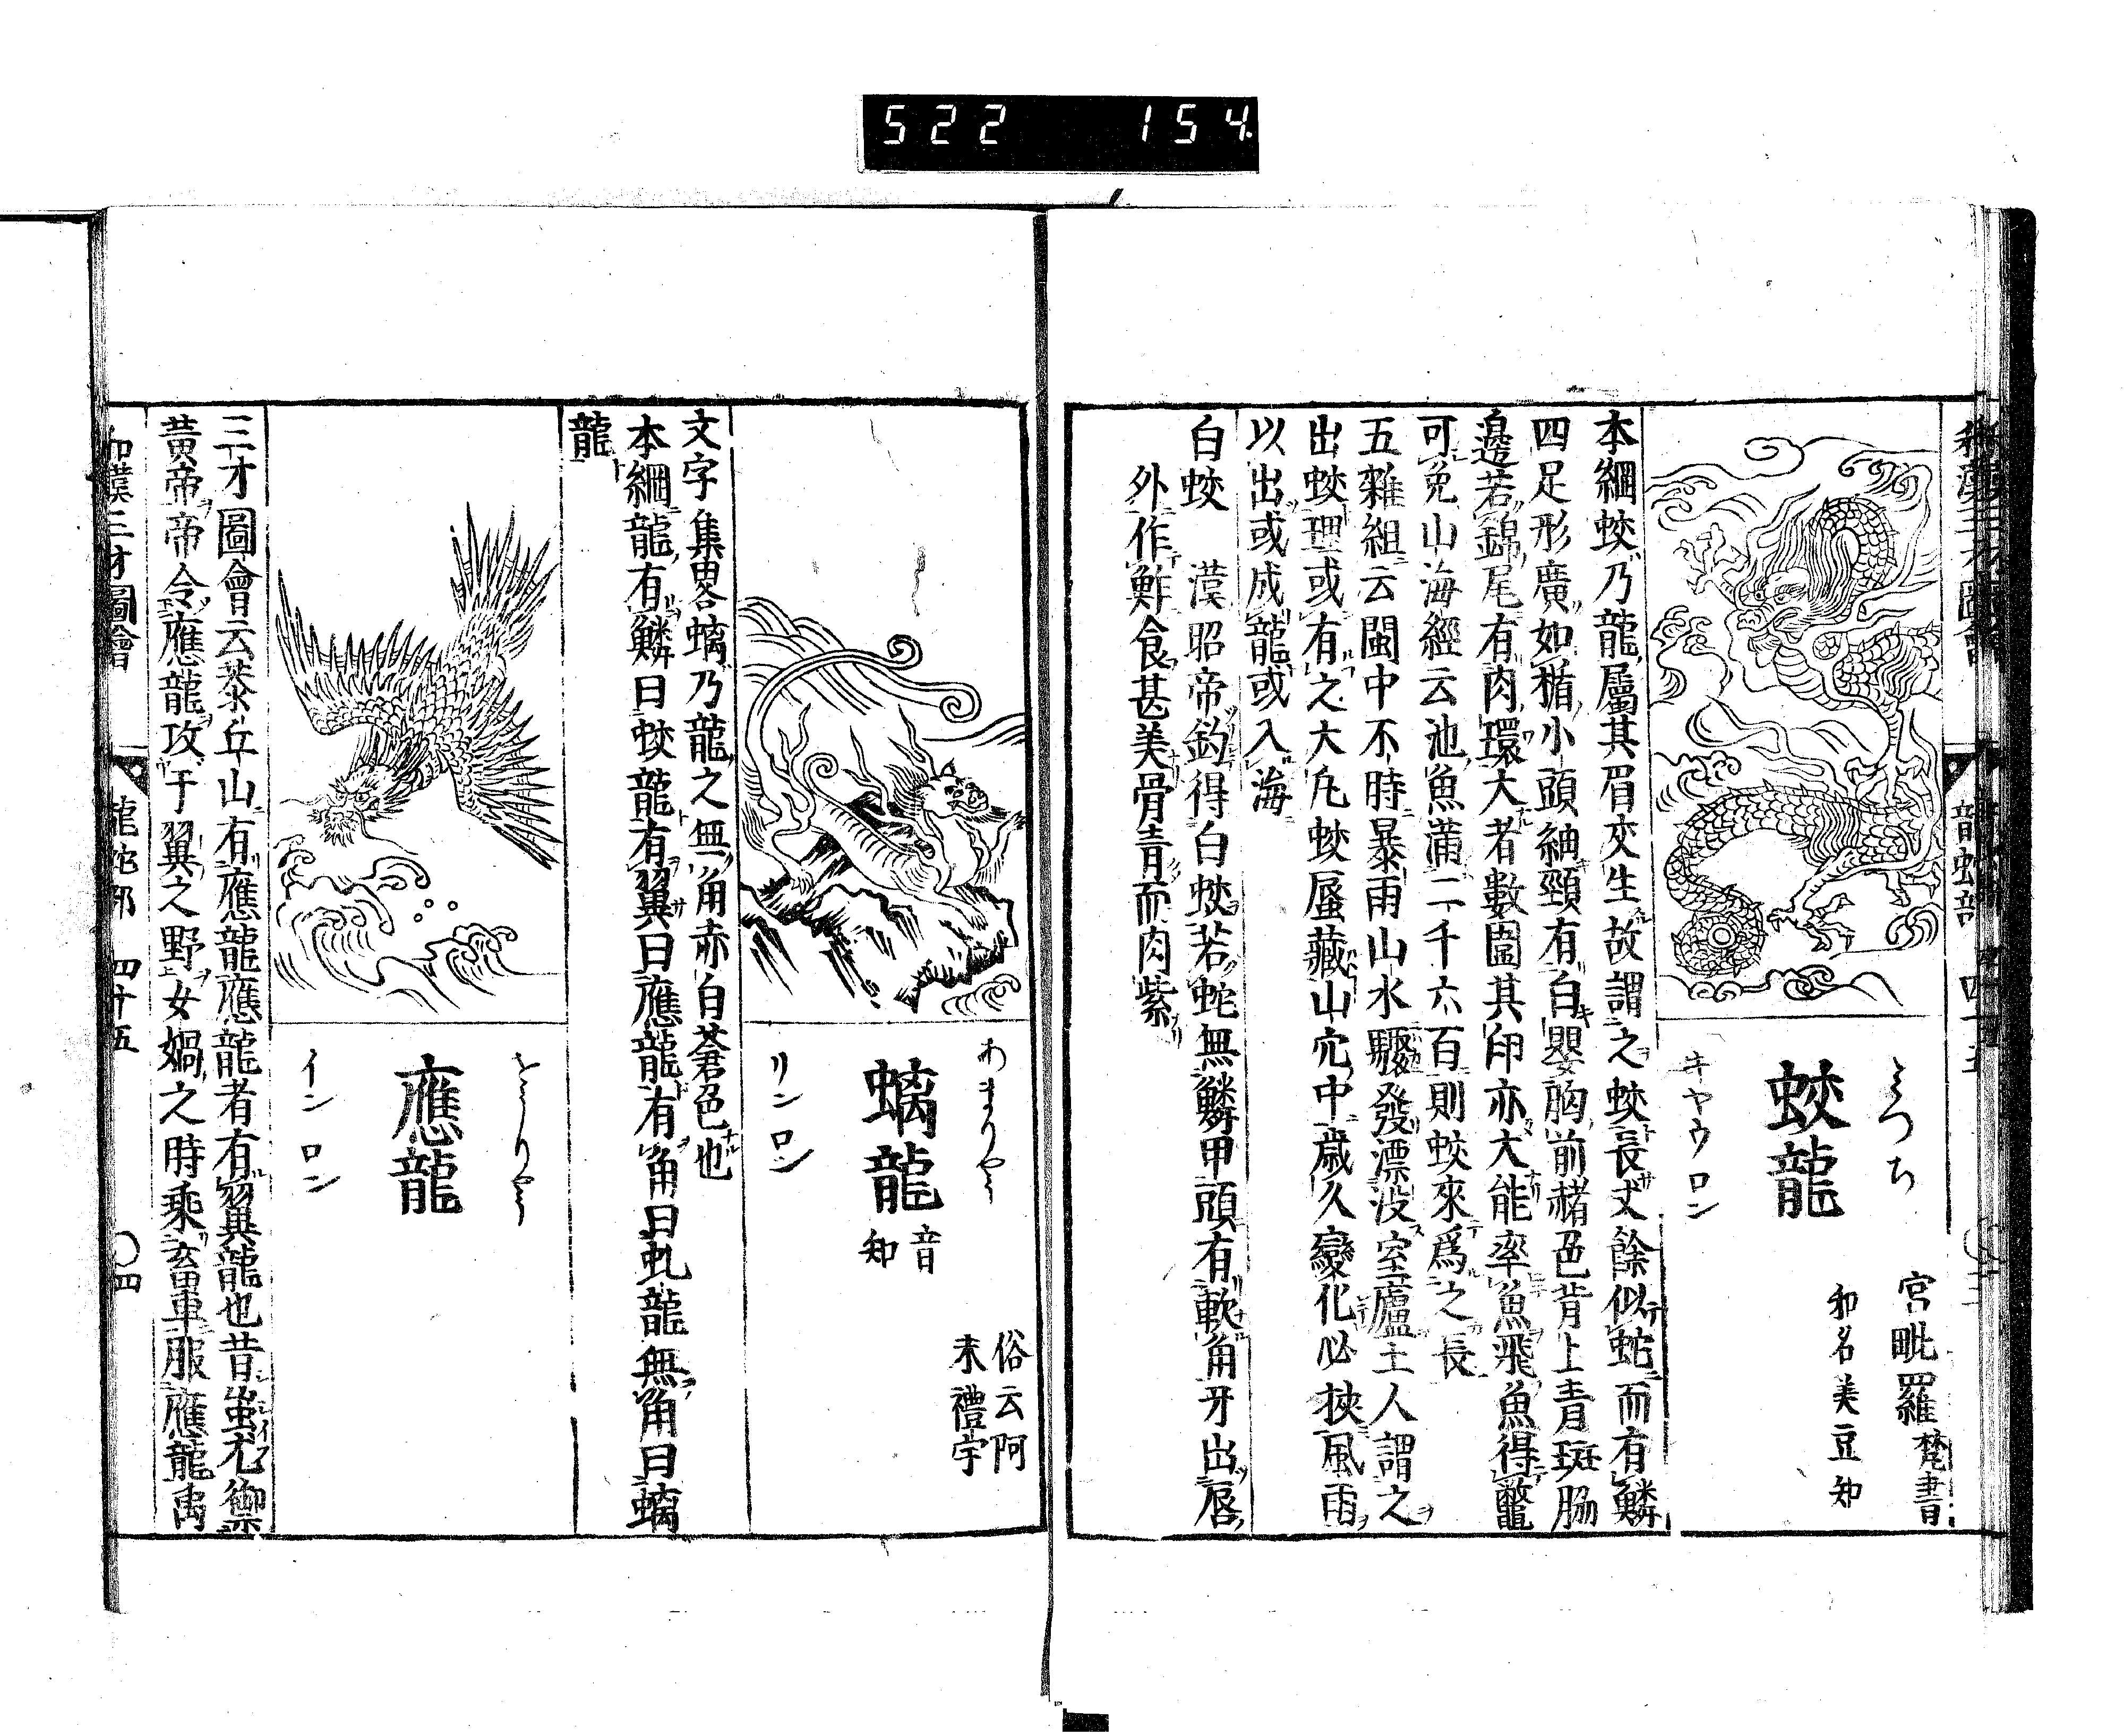 522 154
龍蛇部
みつち
宮毗羅 梵書
蛟龍
和名美豆知
キヤウロン
本綱蛟乃龍屬其眉交生故謂之蛟長丈餘似蛇而有鱗
四足形廣如楯小頭細頸有白嬰胸前赭色背上青斑脇
邊若錦尾有肉環大者數圍其印亦大能率魚飛魚得鼈
可免山海經云池魚滿二千六百則蛟來爲之長
五雜組云閩中不時暴雨山水驟發漂没室廬土人謂之
出蛟理或有之大凡蛟蜃藏山穴中歳久變化必挾風雨
以出或成龍或入海
白蛟 漢昭帝釣得白蛟若蛇無鱗甲頭有軟角牙出唇
外作鮓食甚美骨青而肉紫
あまりやう
俗云阿
末禮宇
螭龍
音
知
リンロン
文字集畧螭乃龍之無角赤白蒼色也
本綱龍有鱗曰蛟龍有翼曰應龍有角曰虬龍無角曰螭
龍
をうりやう
應龍
インロン
三才圖會云恭丘山有應龍應龍者有翼龍也昔蚩尤禦
黄帝帝令應龍攻于翼之野女媧之時乘畜車服應龍禹
和漢三才圖會 龍蛇部 四十五 〇四